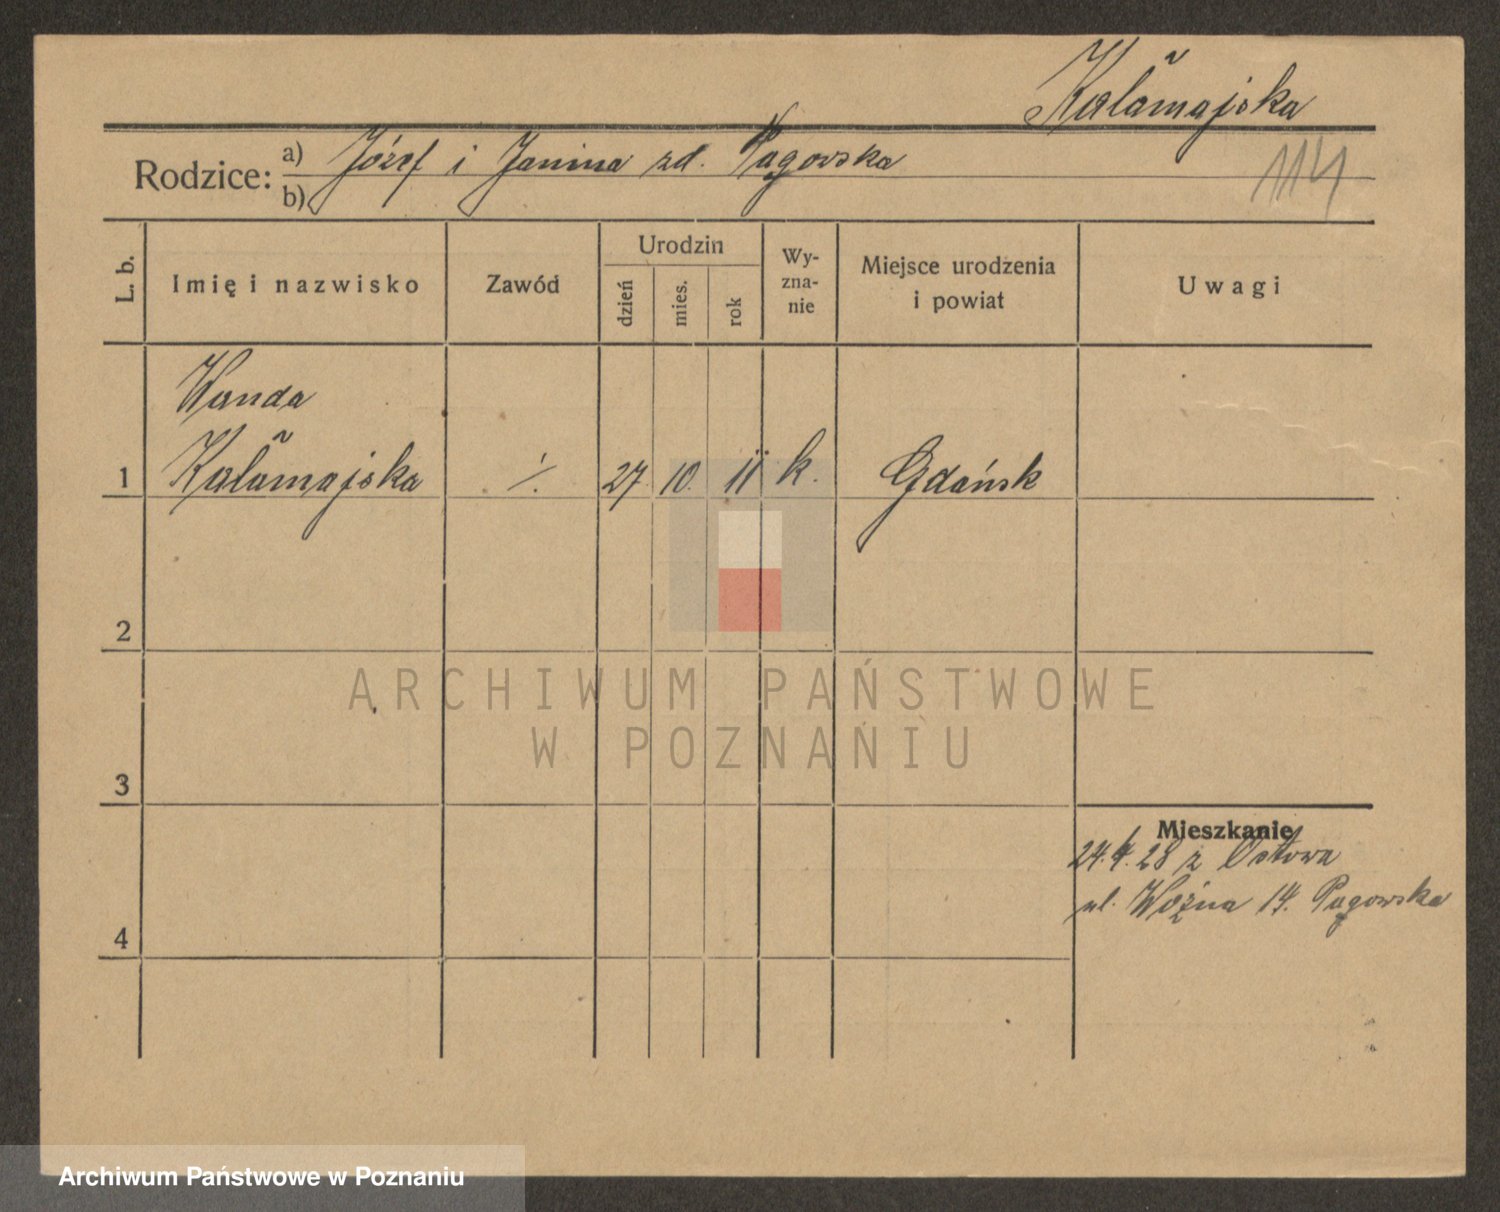 Kałamajska
Rodzice: a) Józef i Janina zd. Pągowska
b)
114
L. b.
Imię i nazwisko
Zawód
Urodzin
dzień
mies.
rok
Wy-
zna-
nie
Miejsce urodzenia
i powiat
Uwagi
Wanda
1 Kałamajska ·/. 27. 10. 11 k. Gdańsk
2
ARCHIWUM PAŃSTWOWE
W POZNANIU
3
Mieszkanie
24.4.28 z
ul. Woźna 14. Pągowska
4
Archiwum Państwowe w Poznaniu